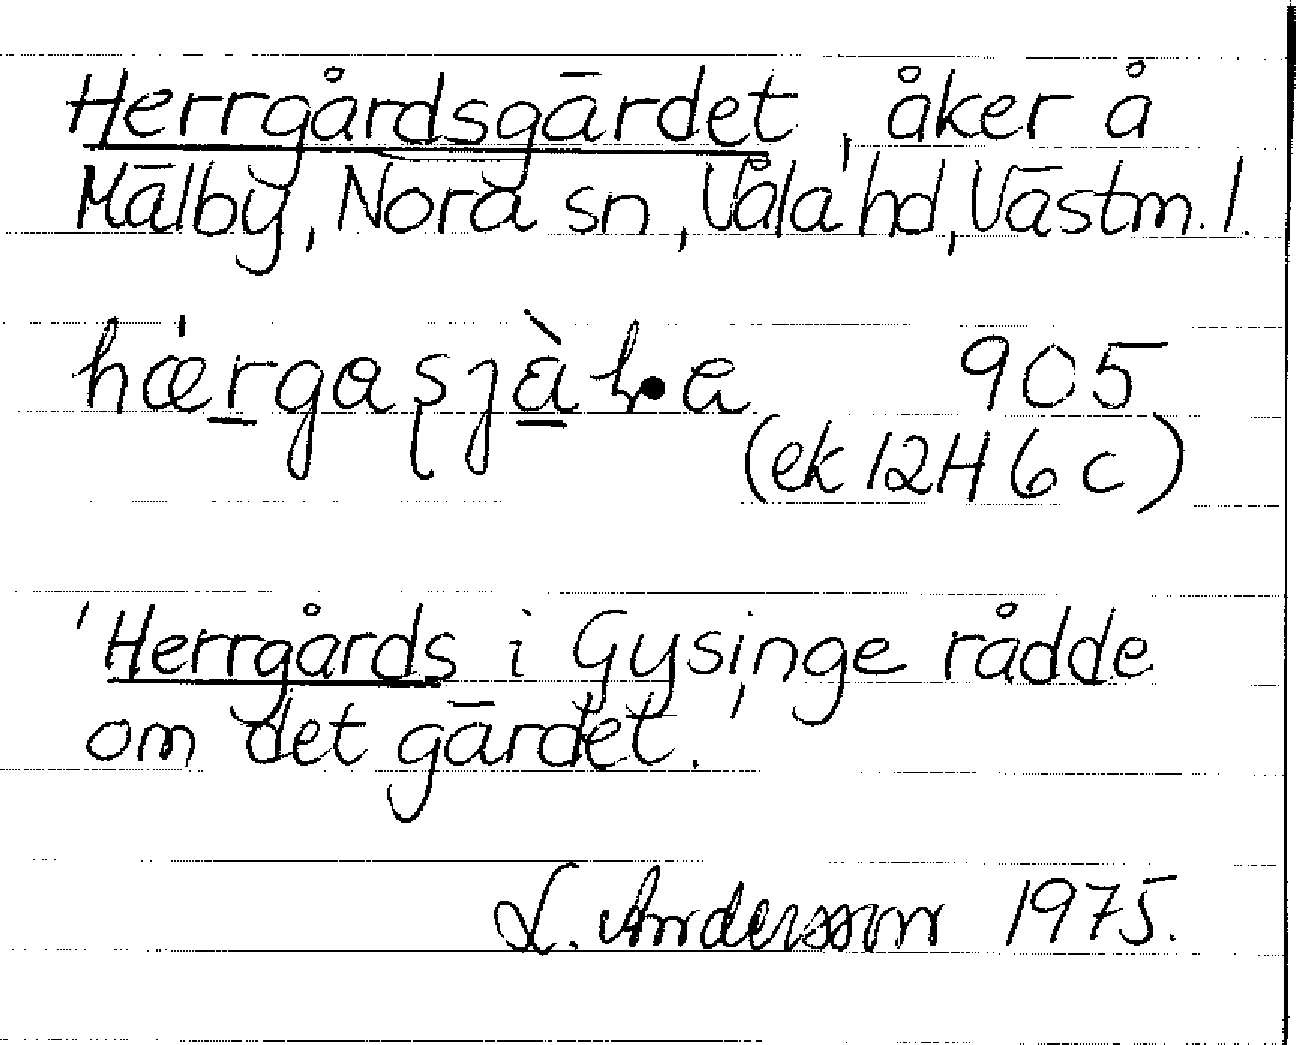 Herrgårdsgärdet, åker å
Mälby, Nora sn, Våla hd, Västm. l.
905
(ek 12H 6c)
'Herrgårds i Gysinge rådde
om det gärdet.'
L. Andersson 1975.